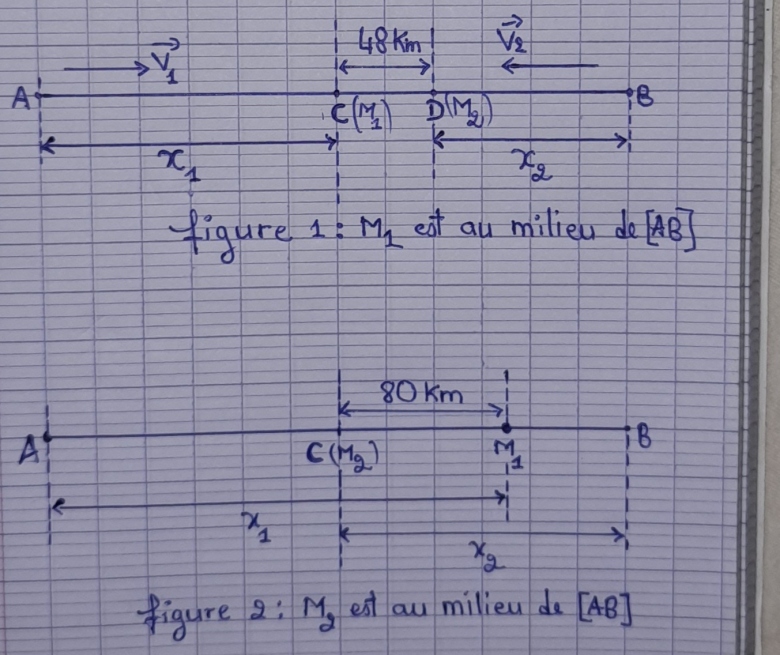 48Km
V₁ V₂
A C(M₁) D(M₂) B
x₁ x₂
figure 1 : M₁ est au milieu de [AB]
80 Km
A C(M₂) M₁ B
x₁
x₂
figure 2 : M₂ est au milieu de [AB]